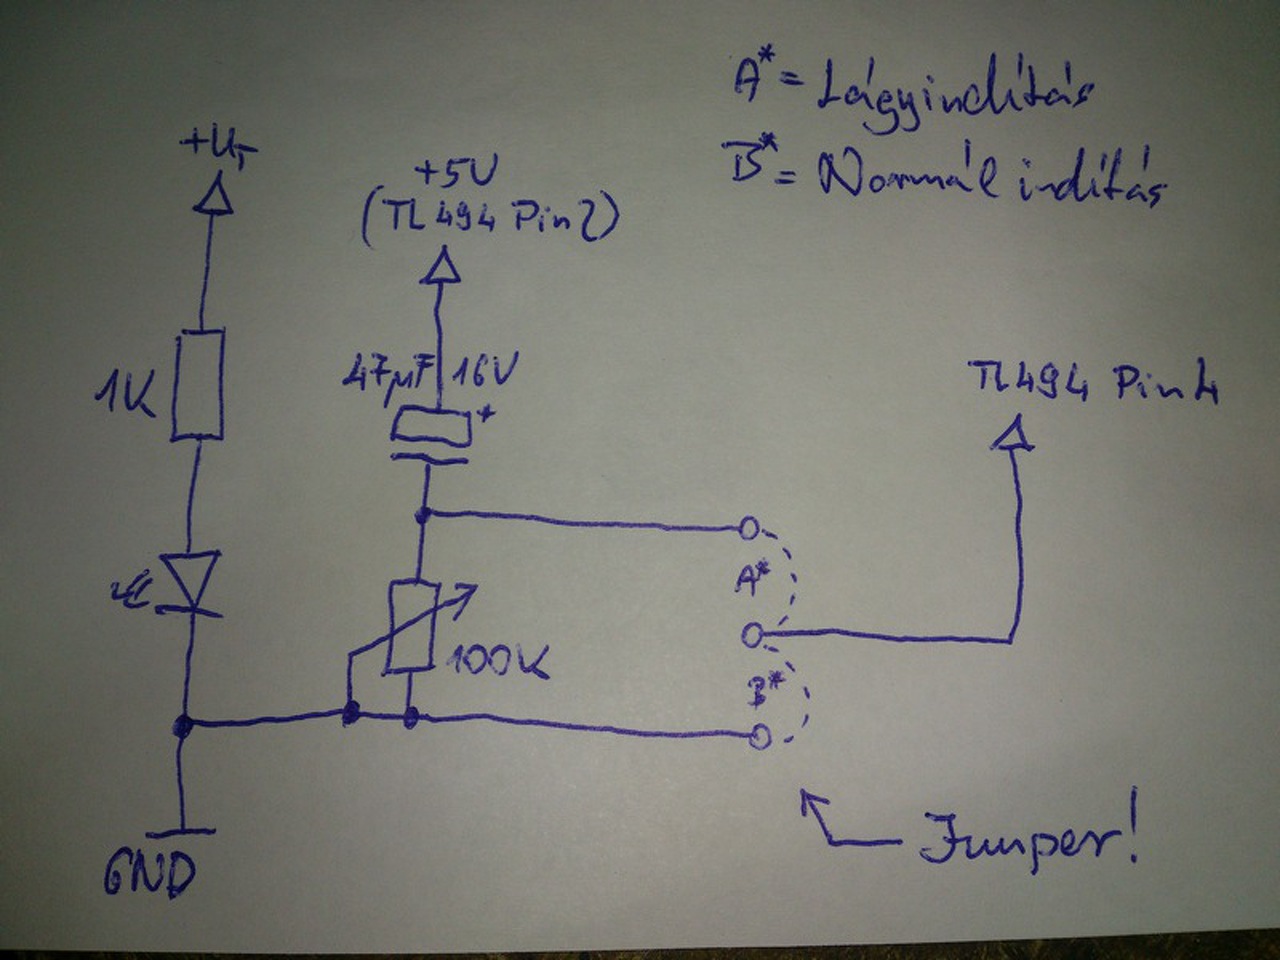 A* = Lágyindítás
B* = Normál indítás
+UT
+5V
(TL494 Pin2)
47µF 16V
+
1K
TL494 Pin4
A*
100K
B*
Jumper!
GND